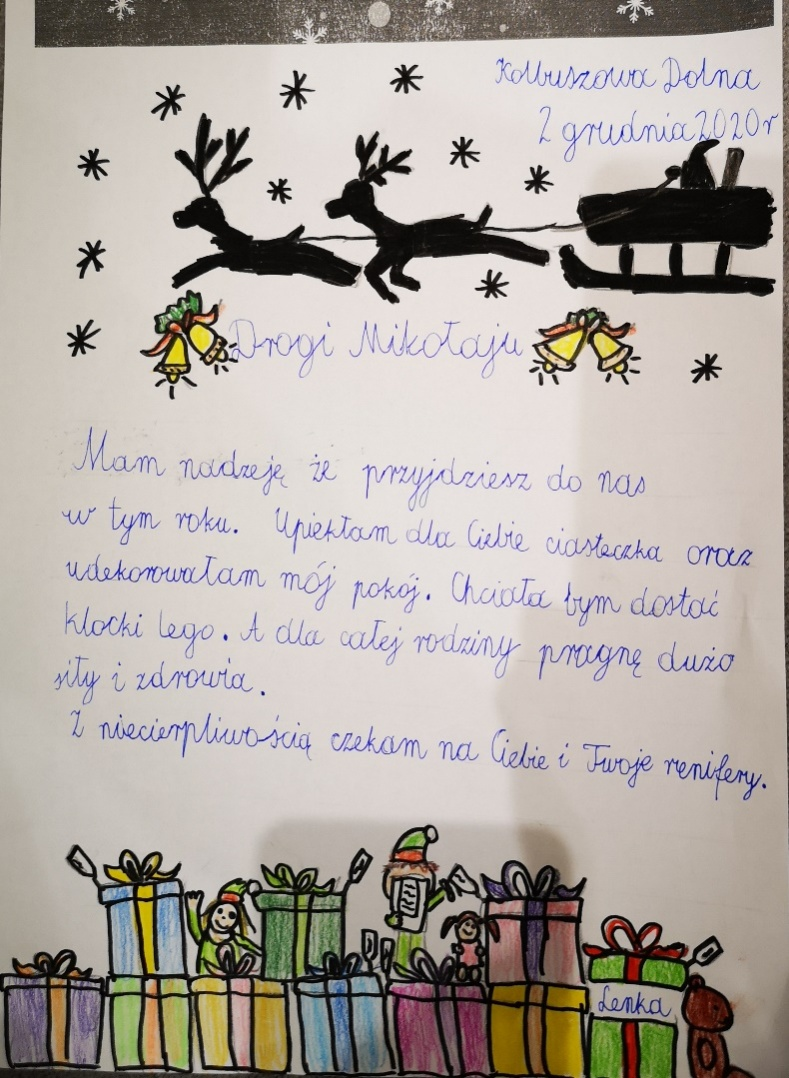 Kolbuszowa Dolna
2 grudnia 2020r
Drogi Mikołaju
Mam nadzeję że przyjdziesz do nas
w tym roku. Upiekłam dla Ciebie ciasteczka oraz
udekorowałam mój pokój. Chciała bym dostać
klocki lego. A dla całej rodziny pragnę dużo
siły i zdrowia.
Z niecierpliwością czekam na Ciebie i Twoje renifery.
Lenka